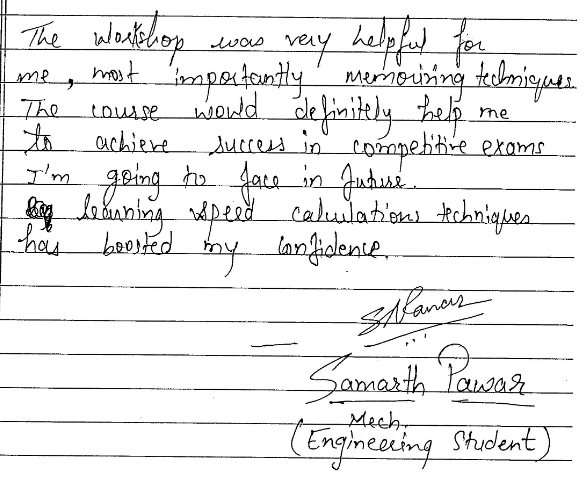 The workshop was very helpful for
me, most importantly memorizing techniques.
The course would definitely help me
to achieve success in competitive exams
I'm going to face in future.
learning speed calculations techniques
has boosted my confidence.
SPawar
Samarth Pawar
Mech.
(Engineering Student)